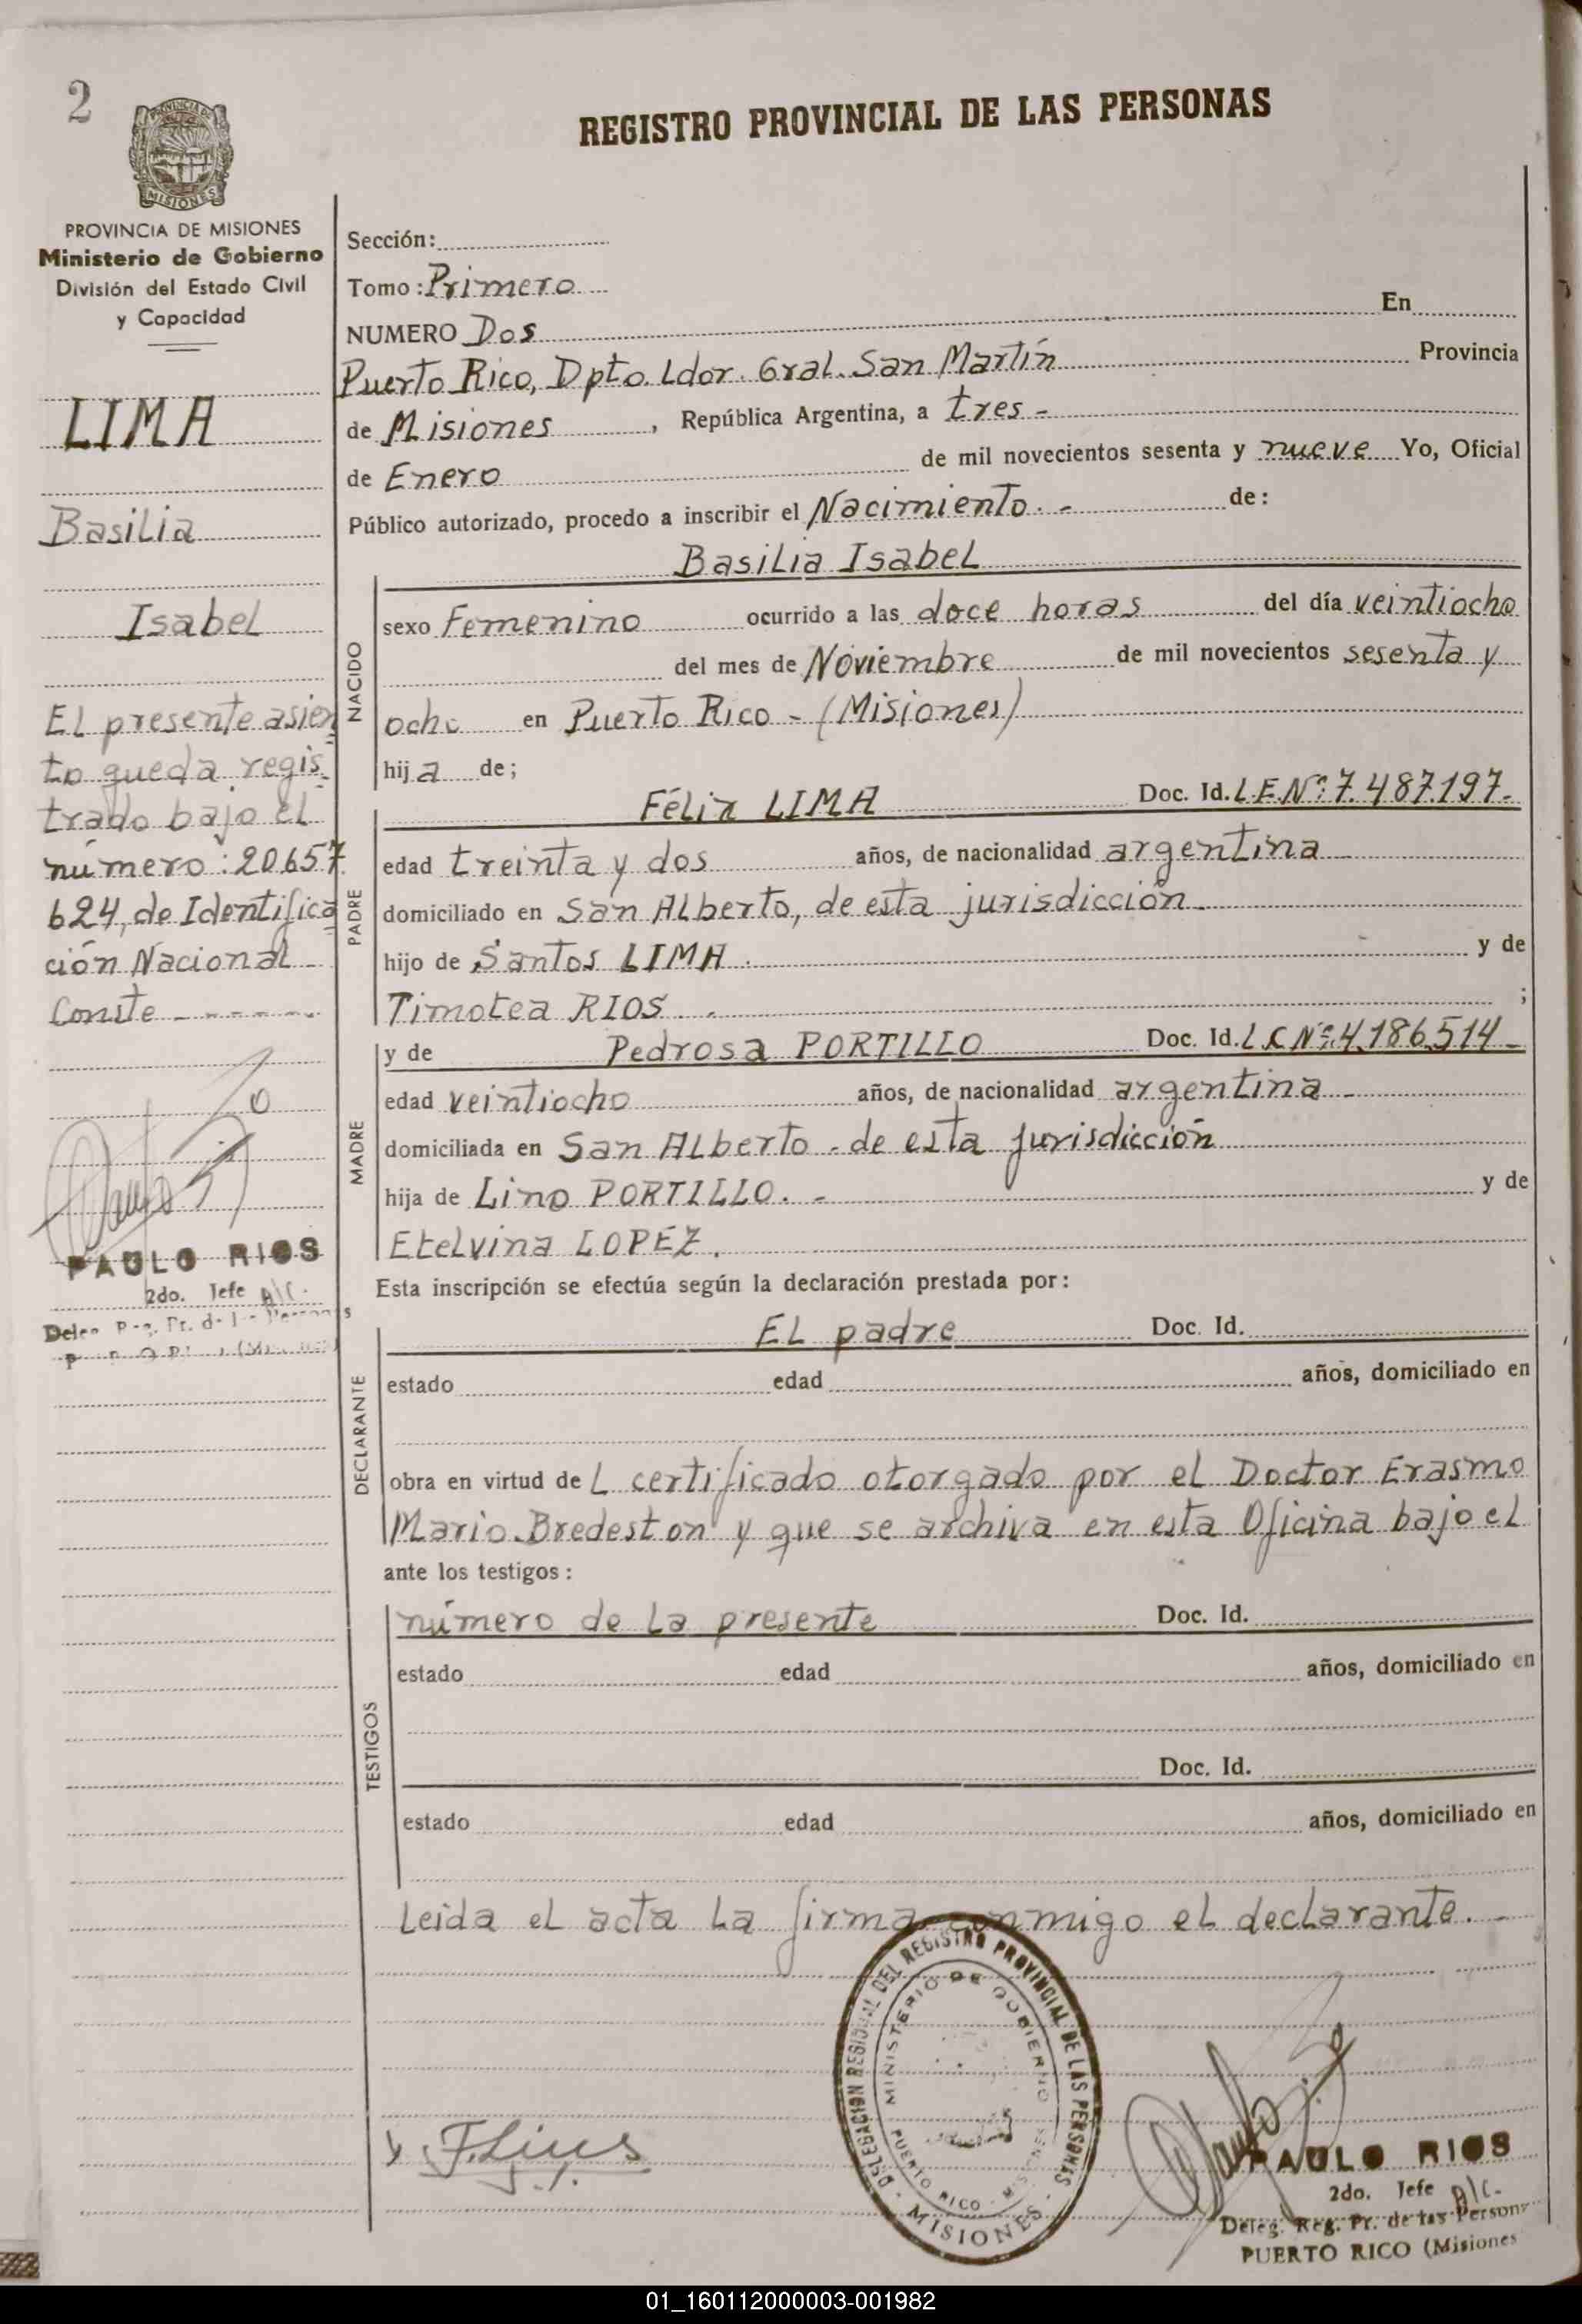 2
PROVINCIA DE MISIONES
Ministerio de Gobierno
División del Estado Civil
y Capacidad
LIMA
Basilia
Isabel
El presente asien
to queda regis
trado bajo el
número: 20.657
624, de Identifica
ción Nacional
Conste
PAULO RIOS
2do. Jefe A/C.
REGISTRO PROVINCIAL DE LAS PERSONAS
Sección:
Tomo: Primero
NUMERO Dos En
Puerto Rico, Dpto. Ldor. Gral. San Martín Provincia
de Misiones, República Argentina, a tres -
de Enero de mil novecientos sesenta y nueve Yo, Oficial
Público autorizado, procedo a inscribir el Nacimiento. - de:
Basilia Isabel
NACIDO
sexo Femenino ocurrido a las doce horas del día veintiocho
del mes de Noviembre de mil novecientos sesenta y
ocho en Puerto Rico - (Misiones)
hija de;
PADRE
Félix LIMA Doc. Id. L.E.Nº: 7.487.197.-
edad treinta y dos años, de nacionalidad argentina
domiciliado en San Alberto, de esta jurisdicción
hijo de Santos LIMA. y de
Timotea RIOS. ;
MADRE
y de Pedrosa PORTILLO Doc. Id. L.C Nº: 4.186.514 -
edad veintiocho años, de nacionalidad argentina -
domiciliada en San Alberto - de esta jurisdicción
hija de Lino PORTILLO. - y de
Etelvina LOPEZ.
Esta inscripción se efectúa según la declaración prestada por:
DECLARANTE
El padre Doc. Id.
estado edad años, domiciliado en
obra en virtud de L certificado otorgado por el Doctor Erasmo
Mario Bredeston y que se archiva en esta Oficina bajo el
ante los testigos:
TESTIGOS
número de la presente Doc. Id.
estado edad años, domiciliado en
Doc. Id.
estado edad años, domiciliado en
Leida el acta la firma conmigo el declarante. -
DELEGACION REGIONAL DEL REGISTRO PROVINCIAL DE LAS PERSONAS
MINISTERIO DE GOBIERNO
PUERTO RICO - MISIONES
- MISIONES -
PAULO RIOS
2do. Jefe A/C.
Deleg. Reg. Pr. de las Person
PUERTO RICO (Misiones
01_160112000003-001982